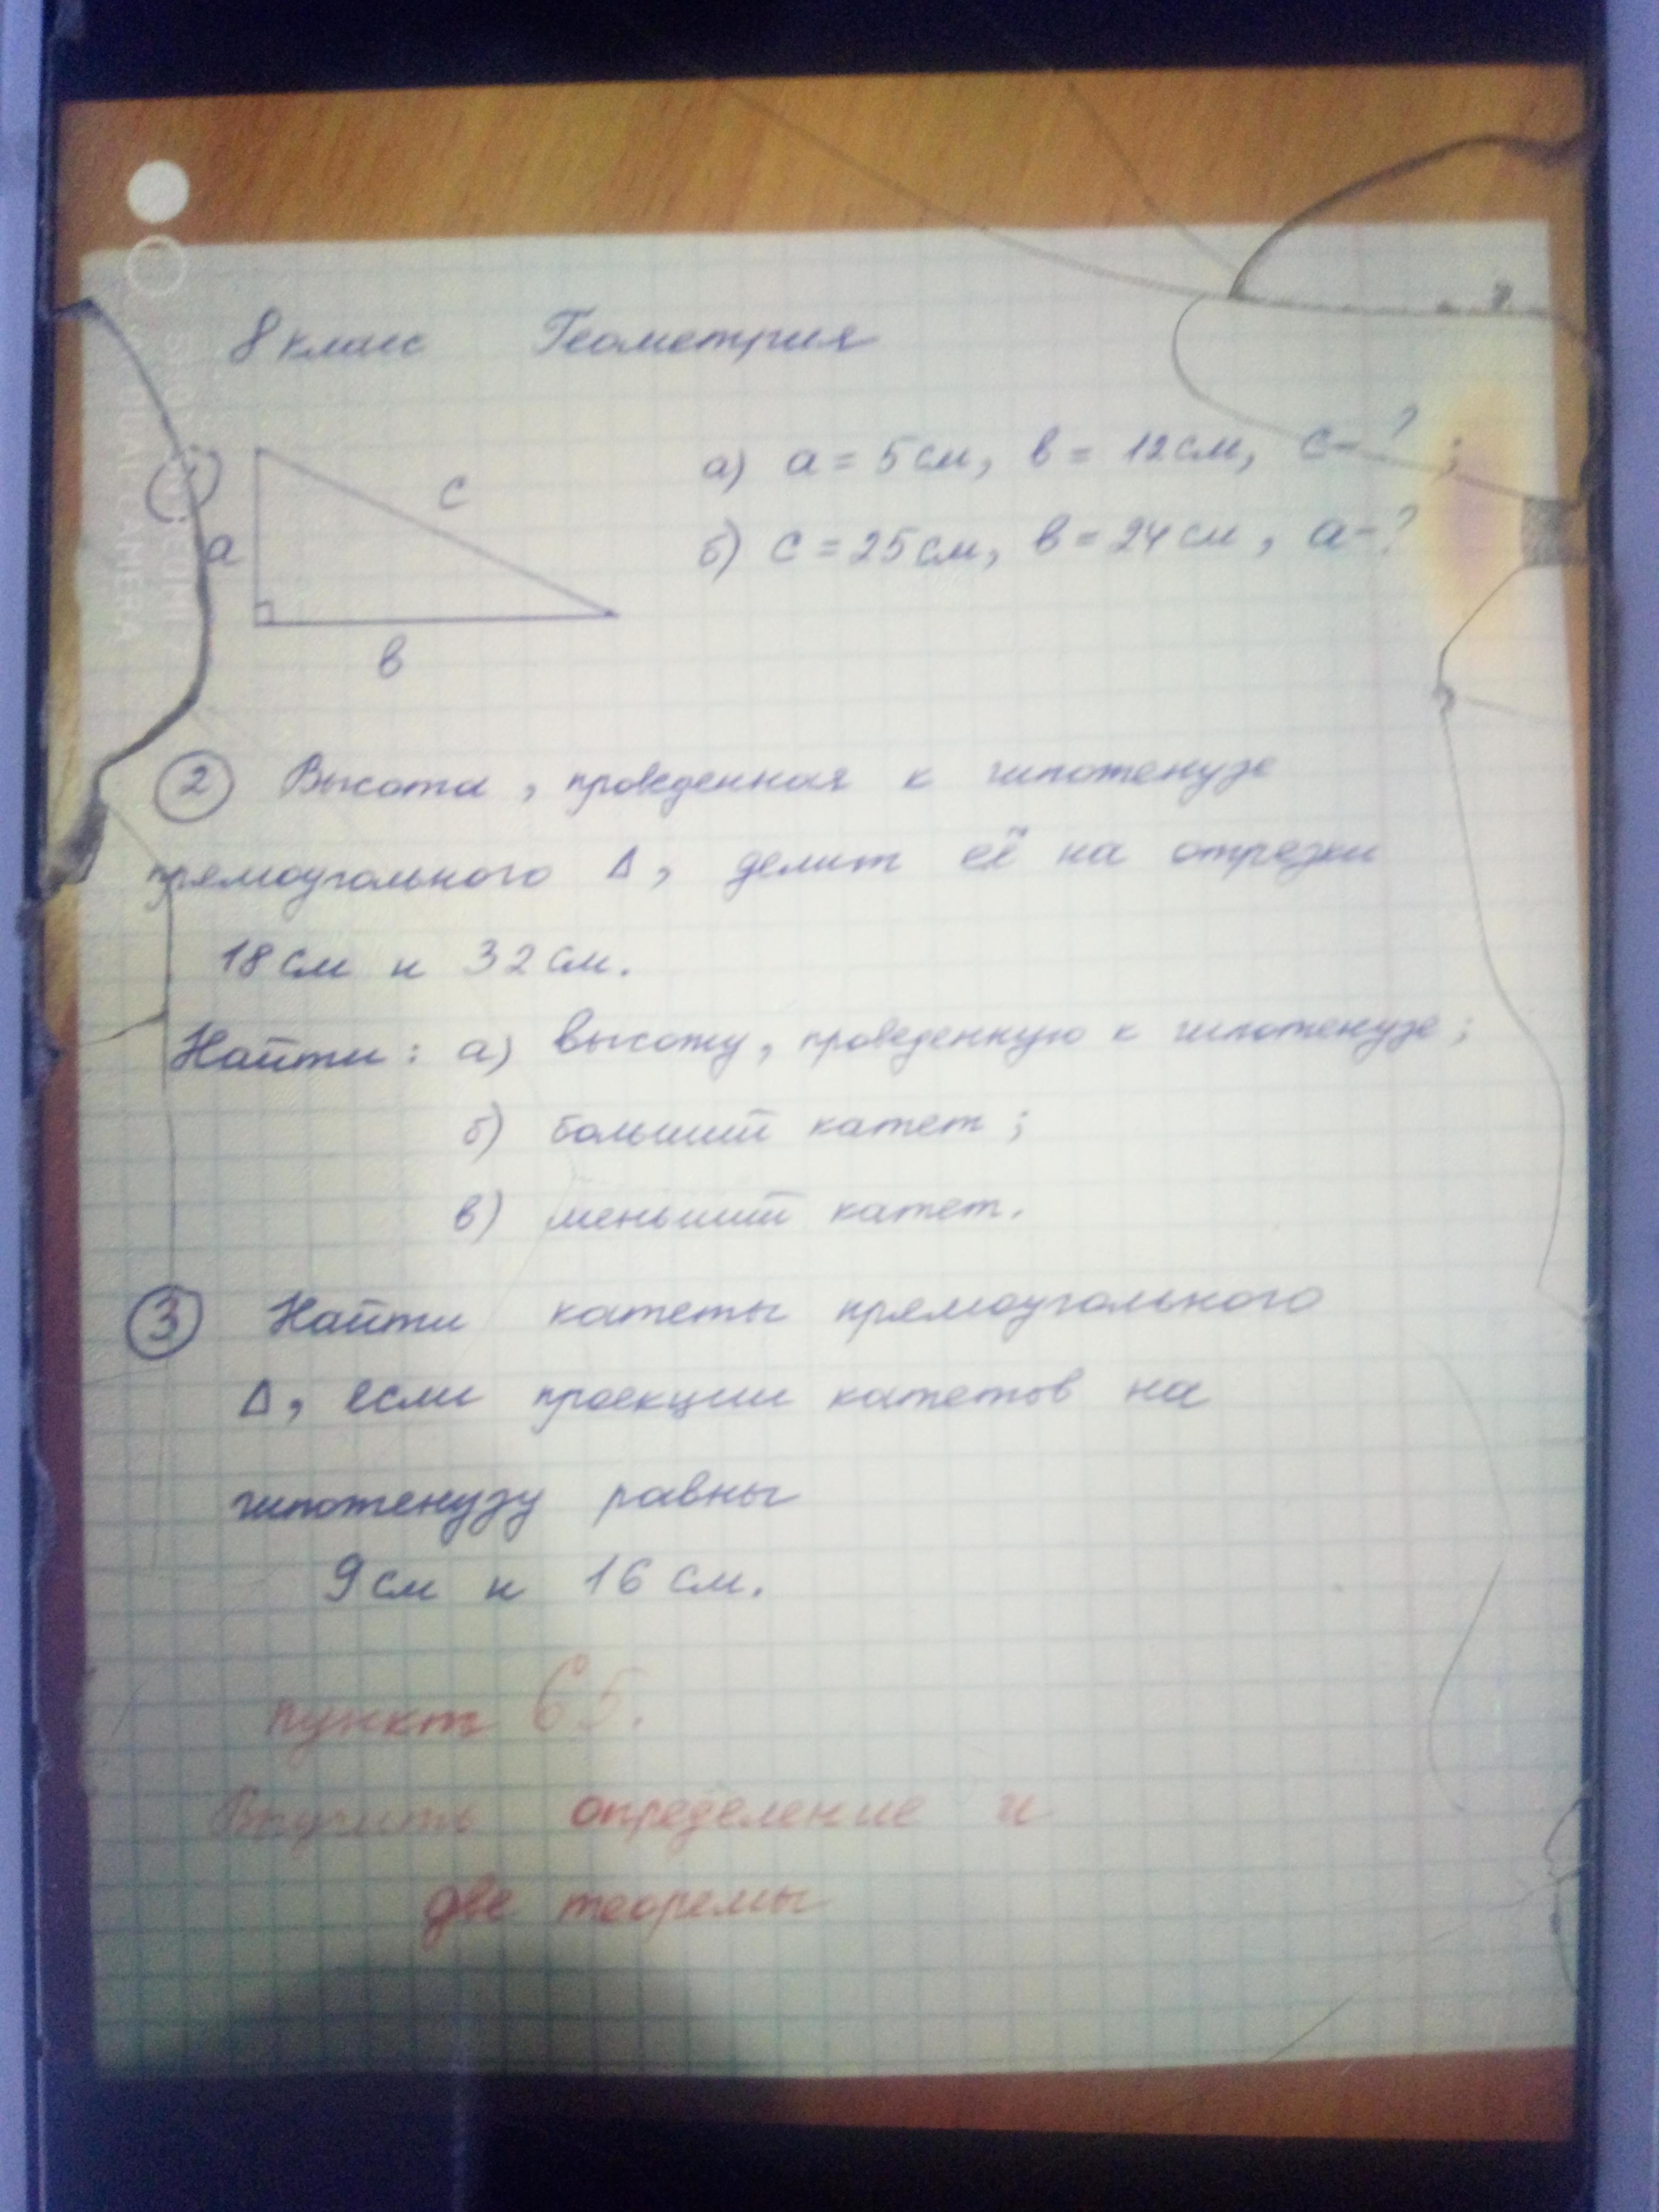 8 класс Геометрия
① a c в
а) a = 5 см, в = 12 см, c - ? ;
б) c = 25 см, в = 24 см, a - ?
② Высота, проведенная к гипотенузе
прямоугольного Δ, делит её на отрезки
18 см и 32 см.
Найти: а) высоту, проведенную к гипотенузе;
б) больший катет;
в) меньший катет.
③ Найти катеты прямоугольного
Δ, если проекции катетов на
гипотенузу равны
9 см и 16 см.
пункт 65.
Выучить определение и
две теоремы
DUAL CAMERA